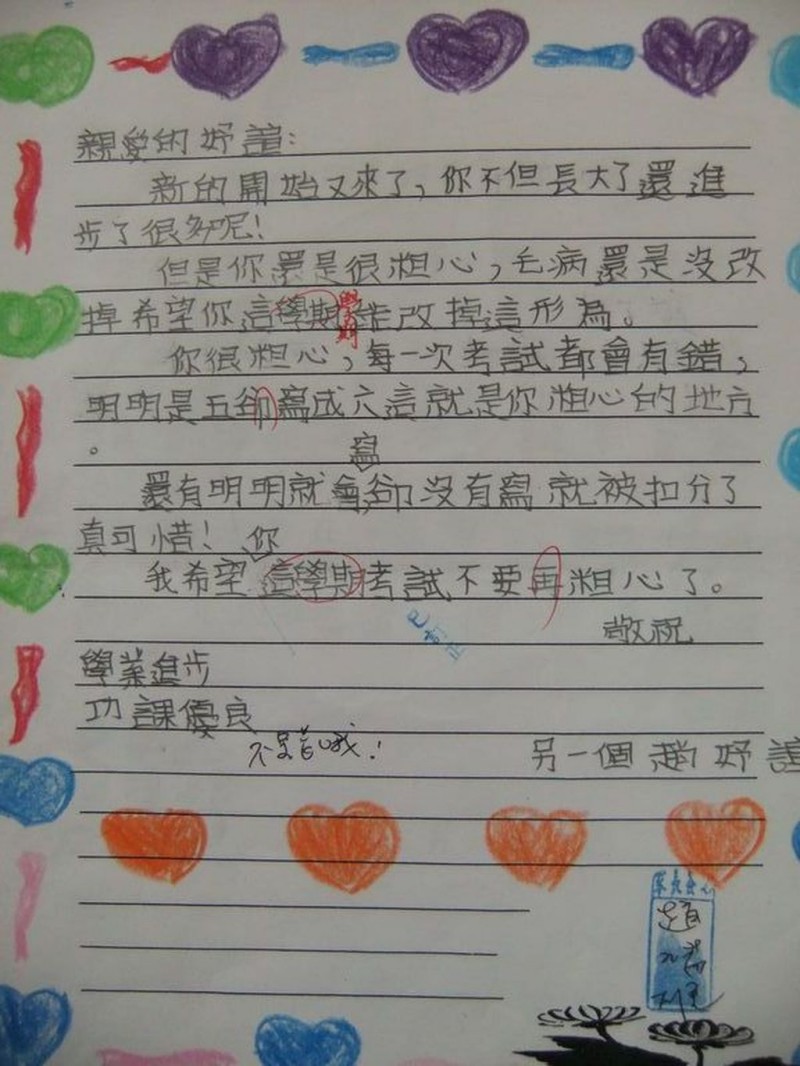 親愛的妤諠:
新的開始又來了,你不但長大了還進
步了很多呢!
但是你還是很粗心,毛病還是沒改
掉希望你這學期能改掉這形為。
學期
你很粗心,每一次考試都會有錯,
明明是五卻寫成六這就是你粗心的地方
。
寫
還有明明就會卻沒有寫就被扣分了
真可惜! 你
我希望這學期考試不要再粗心了。
敬祝
學業進步
功課優良
另一個趙妤諠
家長簽名
趙